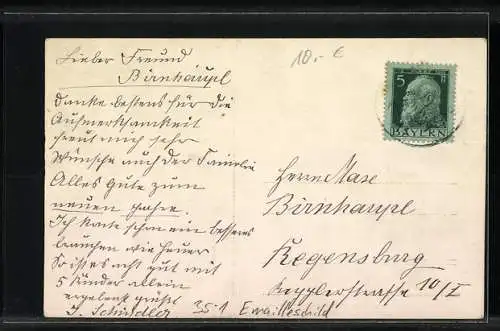 Lieber Freund
Birnhäupl
danke bestens für die
Aufmerksamkeit
freut mich sehr
Wünsche auch der Familie
Alles gute zum
neuen Jahre.
Ich könte schon ein besseres
brauchen wie heuer
So ist es acht gut mit
5 Kinder allein
ergebenst grüßt
J. Schindler
10.- €
5 Pf
BAYERN
Herrn Max
Birnhäupl
Regensburg
10/I
351 Emailleschild